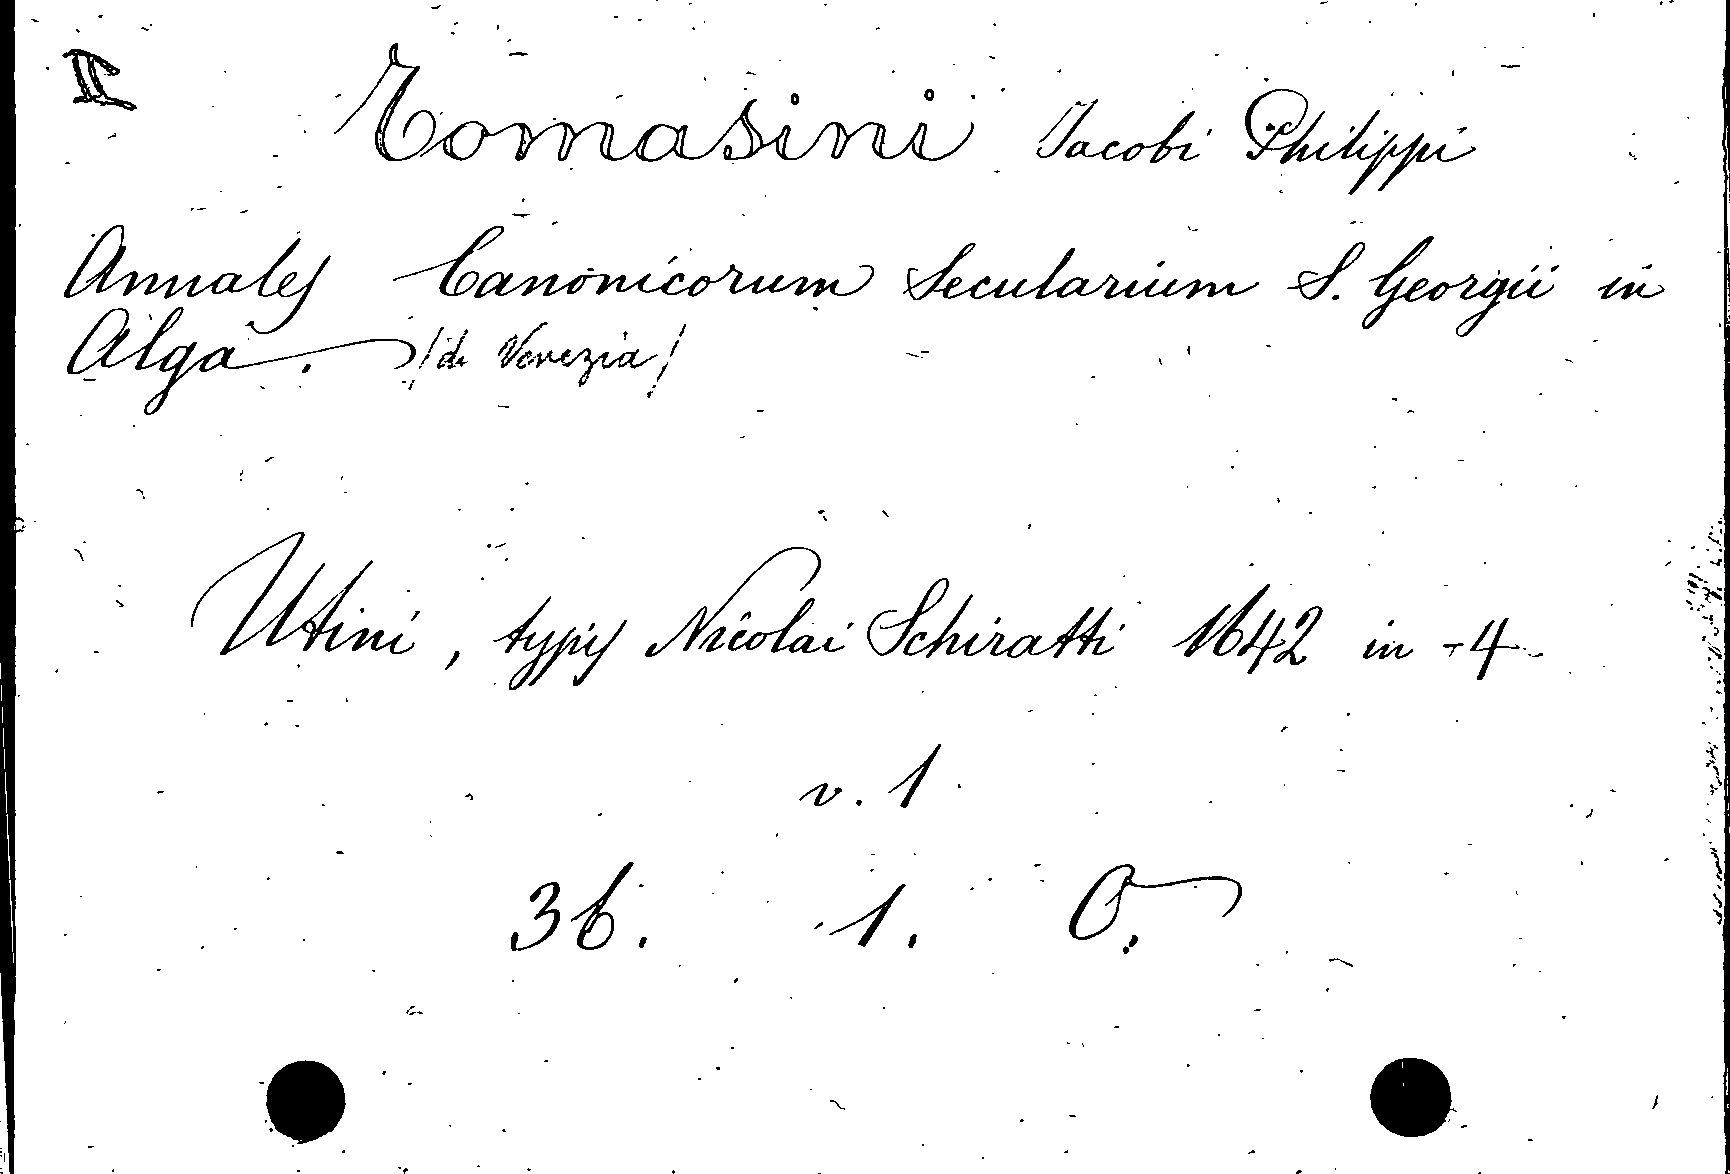 II
Tomasini Jacobi Philippi
Annales Canonicorum Secularium S. Georgii in
Alga. /di Venezia/
Utini, typis Nicolai Schiratti 1642 in-4
v. 1
36. 1. O.